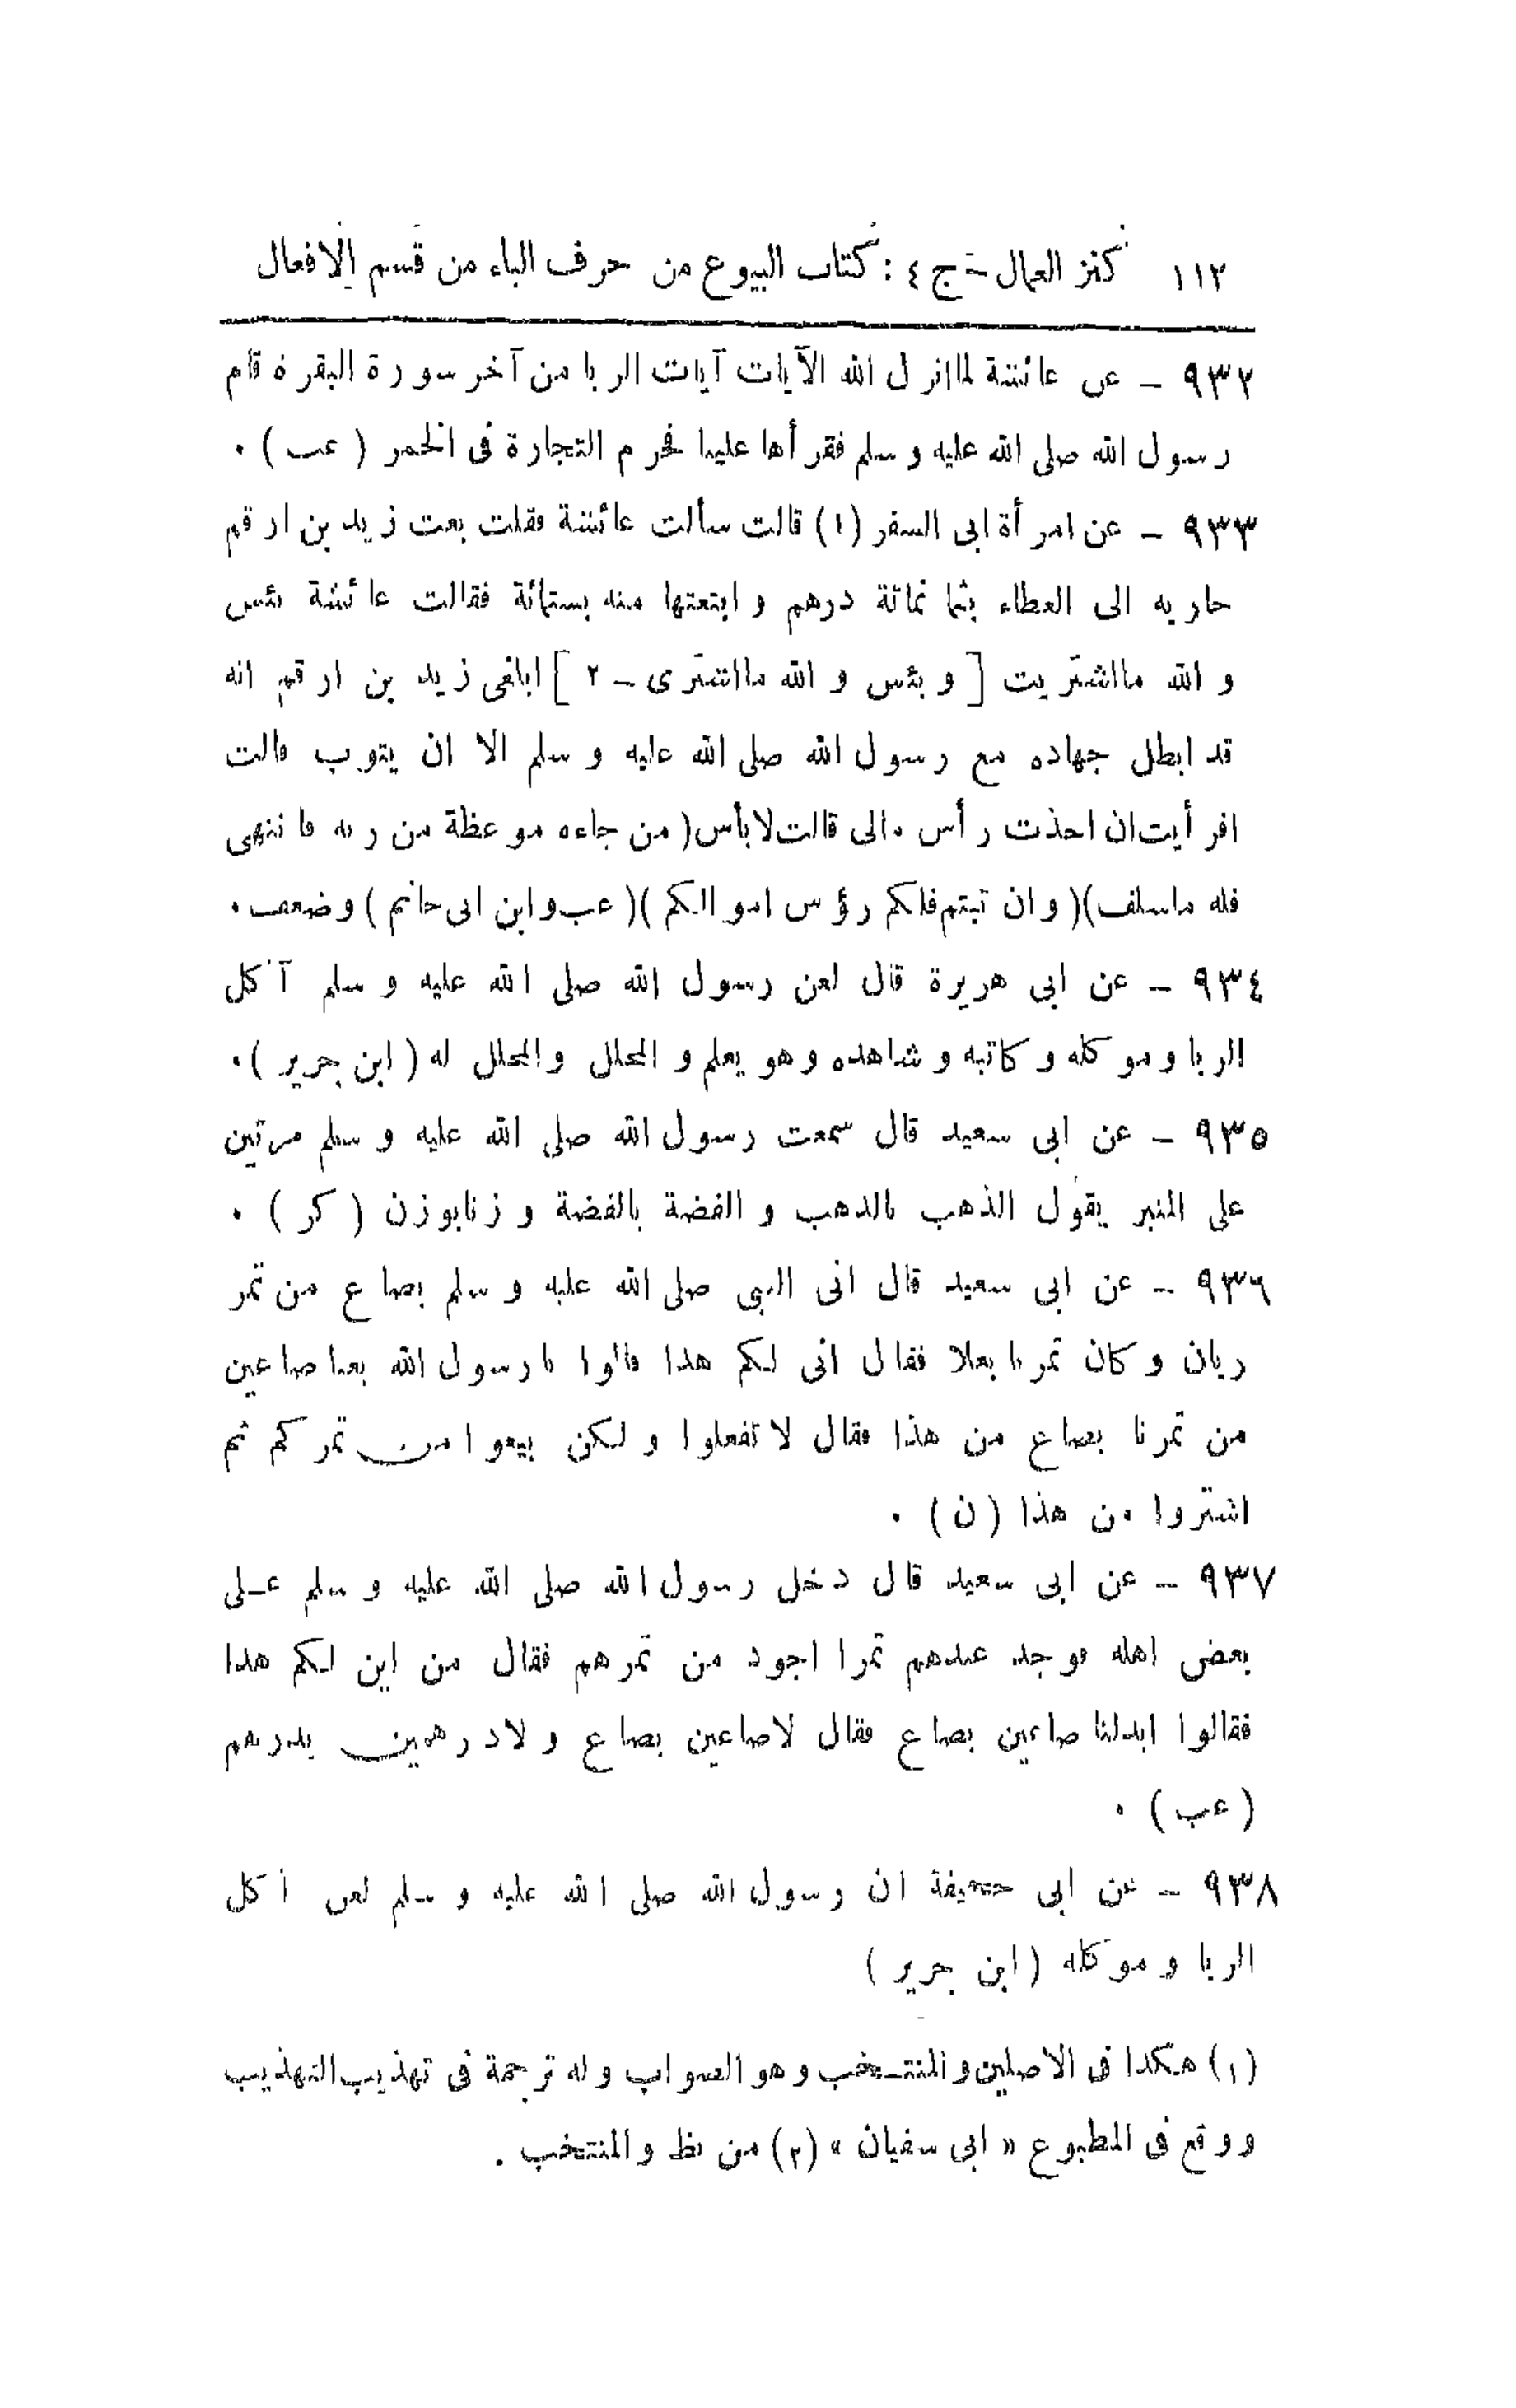 ١١٢ كنز العمال – ج ٤ : كتاب البيوع من حرف الباء من قسم الافعال
٩٣٢ – عن عائشة لما انزل الله الآيات آيات الربا من آخر سورة البقرة قام
رسول الله صلى الله عليه وسلم فقرأها علينا فحرم التجارة فى الخمر ( عب ) .
٩٣٣ – عن امرأة ابى السفر (١) قالت سألت عائشة فقلت بعت زيد بن ارقم
جارية الى العطاء بثمانمائة درهم وابتعتها منه بستمائة فقالت عائشة بئس
والله ما اشتريت [ وبئس والله ما اشترى – ٢ ] ابلغى زيد بن ارقم انه
قد ابطل جهاده مع رسول الله صلى الله عليه وسلم الا ان يتوب قالت
افرأيت ان اخذت رأس مالى قالت لا بأس ( من جاءه موعظة من ربه فانتهى
فله ما سلف ) ( وان تبتم فلكم رؤس اموالكم ) ( عب وابن ابى حاتم ) وضعف .
٩٣٤ – عن ابى هريرة قال لعن رسول الله صلى الله عليه وسلم آكل
الربا وموكله وكاتبه وشاهده وهو يعلم والمحلل والمحلل له ( ابن جرير ) .
٩٣٥ – عن ابى سعيد قال سمعت رسول الله صلى الله عليه وسلم مرتين
على المنبر يقول الذهب بالذهب والفضة بالفضة وزنا بوزن ( كر ) .
٩٣٦ – عن ابى سعيد قال اتى النبى صلى الله عليه وسلم بصاع من تمر
ريان وكان تمرنا بعلا فقال انى لكم هذا قالوا يا رسول الله بعنا صاعين
من تمرنا بصاع من هذا فقال لا تفعلوا ولكن بيعوا من تمركم ثم
اشتروا من هذا ( ن ) .
٩٣٧ – عن ابى سعيد قال دخل رسول الله صلى الله عليه وسلم على
بعض اهله فوجد عندهم تمرا اجود من تمرهم فقال من اين لكم هذا
فقالوا ابدلنا صاعين بصاع فقال لا صاعين بصاع ولا درهمين بدرهم
( عب ) .
٩٣٨ – عن ابى جحيفة ان رسول الله صلى الله عليه وسلم لعن آكل
الربا وموكله ( ابن جرير )
(١) هكذا فى الاصلين والمنتخب وهو الصواب وله ترجمة فى تهذيب التهذيب
ووقع فى المطبوع « ابى سفيان » (٢) من نظ والمنتخب .